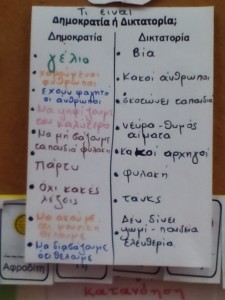 Τι είναι
Δημοκρατία ή Δικτατορία;
Δημοκρατία
• γέλιο
• χαρούμενοι
άνθρωποι
• έχουν φαγητό
οι άνθρωποι
• Να ψηφίζουμε
τον καλύτερο
• Να μη βάζουμε
τα παιδιά φυλακή
• Πάρτυ
• Όχι κακές
λέξεις
• Να ακούμε
• Να διαβάζουμε
ό,τι θέλουμε
Δικτατορία
• Βία
• Κακοί άνθρωποι
• σκοτώνει τα παιδιά
• νεύρα-θυμός
αίματα
• κακοί αρχηγοί
• φυλακή
• τανκς
• Δεν δίνει
ψωμί-παιδεία
ελευθερία
Αφροδίτη
κατανόηση